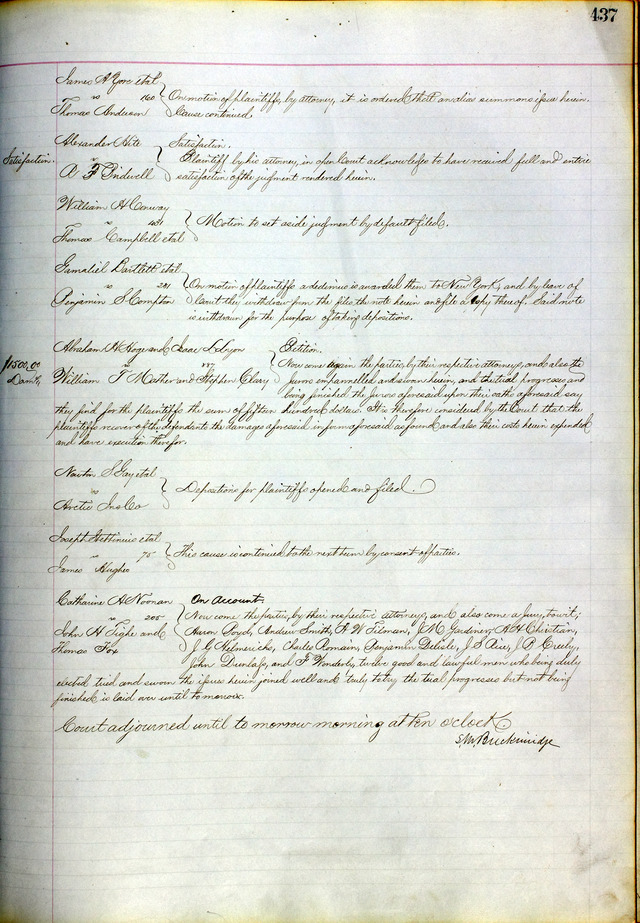 437
James A Yore et al
vs 160 } On motion of plaintiffs, by attorney, it is ordered that an alias summons issue herein.
Thomas Anderson Cause continued.
Alexander Kite Satisfaction.
Satisfaction. vs } Plaintiff by his attorney, in open Court acknowledges to have received full and entire
A F Tidwell satisfaction of the judgment rendered herein.
William A Conway
vs 431 } Motion to set aside judgment by default filed.
Thomas Campbell et al
Gamaliel Bartlett et al
vs 201 } On motion of plaintiffs a dedimus is awarded them to New York, and by leave of
Benjamin S Compton Court they withdraw from the files the note herein and file a copy thereof. Said note
is withdrawn for the purpose of taking depositions.
Abraham W Hoge and Isaac L Lyon Petition.
$1500.00 vs Now come again the parties, by their respective attorneys, and also the
Dam's William F Mather and Stephen Clary Jurors empannelled and sworn herein, and the trial progresses and
being finished the Jurors aforesaid upon their oaths aforesaid say
they find for the plaintiffs the sum of fifteen hundred dollars. It is therefore considered by the Court that the
plaintiffs recover of the defendants the damages aforesaid in form aforesaid as found and also their costs herein expended
and have execution therefor.
Newton S Gay et al
vs } Depositions for plaintiffs opened and filed.
Arctic Ins Co
Joseph et al
vs 75 } This cause is continued to the next term by consent of parties.
James Hughes
Catharine A Noonan On Account.
vs 205 Now come the parties, by their respective attorneys, and also come a Jury, to wit;
John H Tighe and Aaron Boyd, Andrew Smith, A W Filman, J M Gardiner, A H Christian,
Thomas Fox J G Helmericks, Charles Romain, Benjamin Delisle, J S Price, J P Creely,
John Dunlap, and F Wonderly, twelve good and lawful men who being duly
elected tried and sworn the issues herein joined well and truly to try the trial progresses but not being
finished is laid over until to morrow.
Court adjourned until to morrow morning at ten o'clock
S. M. Breckinridge